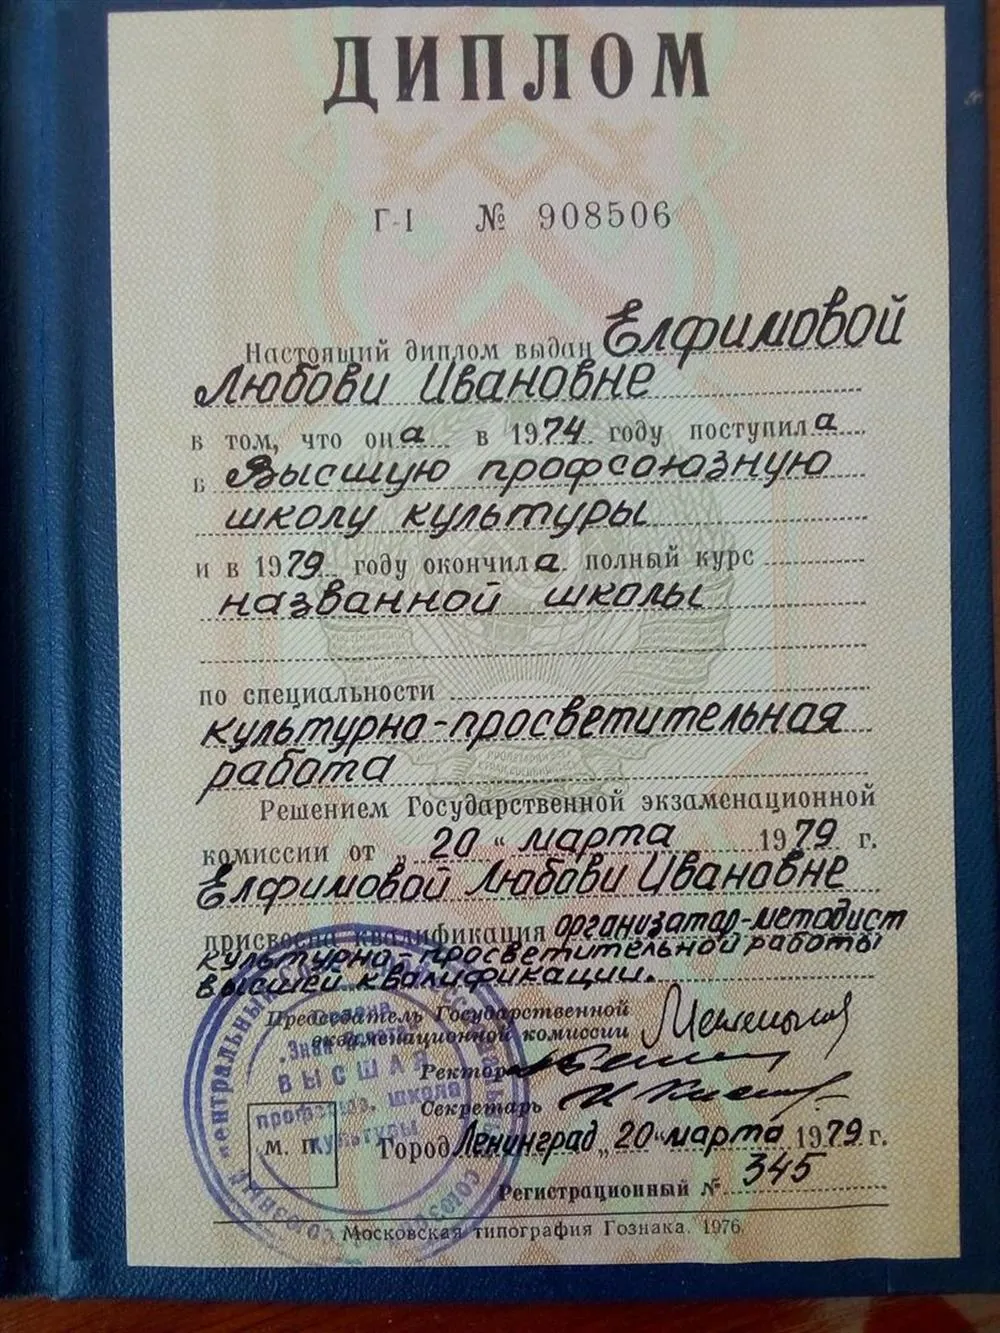 ДИПЛОМ
Г-I № 908506
Настоящий диплом выдан Елфимовой
Любови Ивановне
в том, что она в 1974 году поступила
в Высшую профсоюзную
школу культуры
и в 1979 году окончила полный курс
названной школы
по специальности
культурно-просветительная
работа
Решением Государственной экзаменационной
комиссии от „20“ марта 1979 г.
Елфимовой Любови Ивановне
присвоена квалификация организатор-методист
культурно-просветительной работы
высшей квалификации.
Председатель Государственной
экзаменационной комиссии
Ректор
Секретарь
М. П.
Город Ленинград „20“ марта 1979 г.
Регистрационный № 345
Московская типография Гознака. 1976.
ВЫСШАЯ
школа
культуры